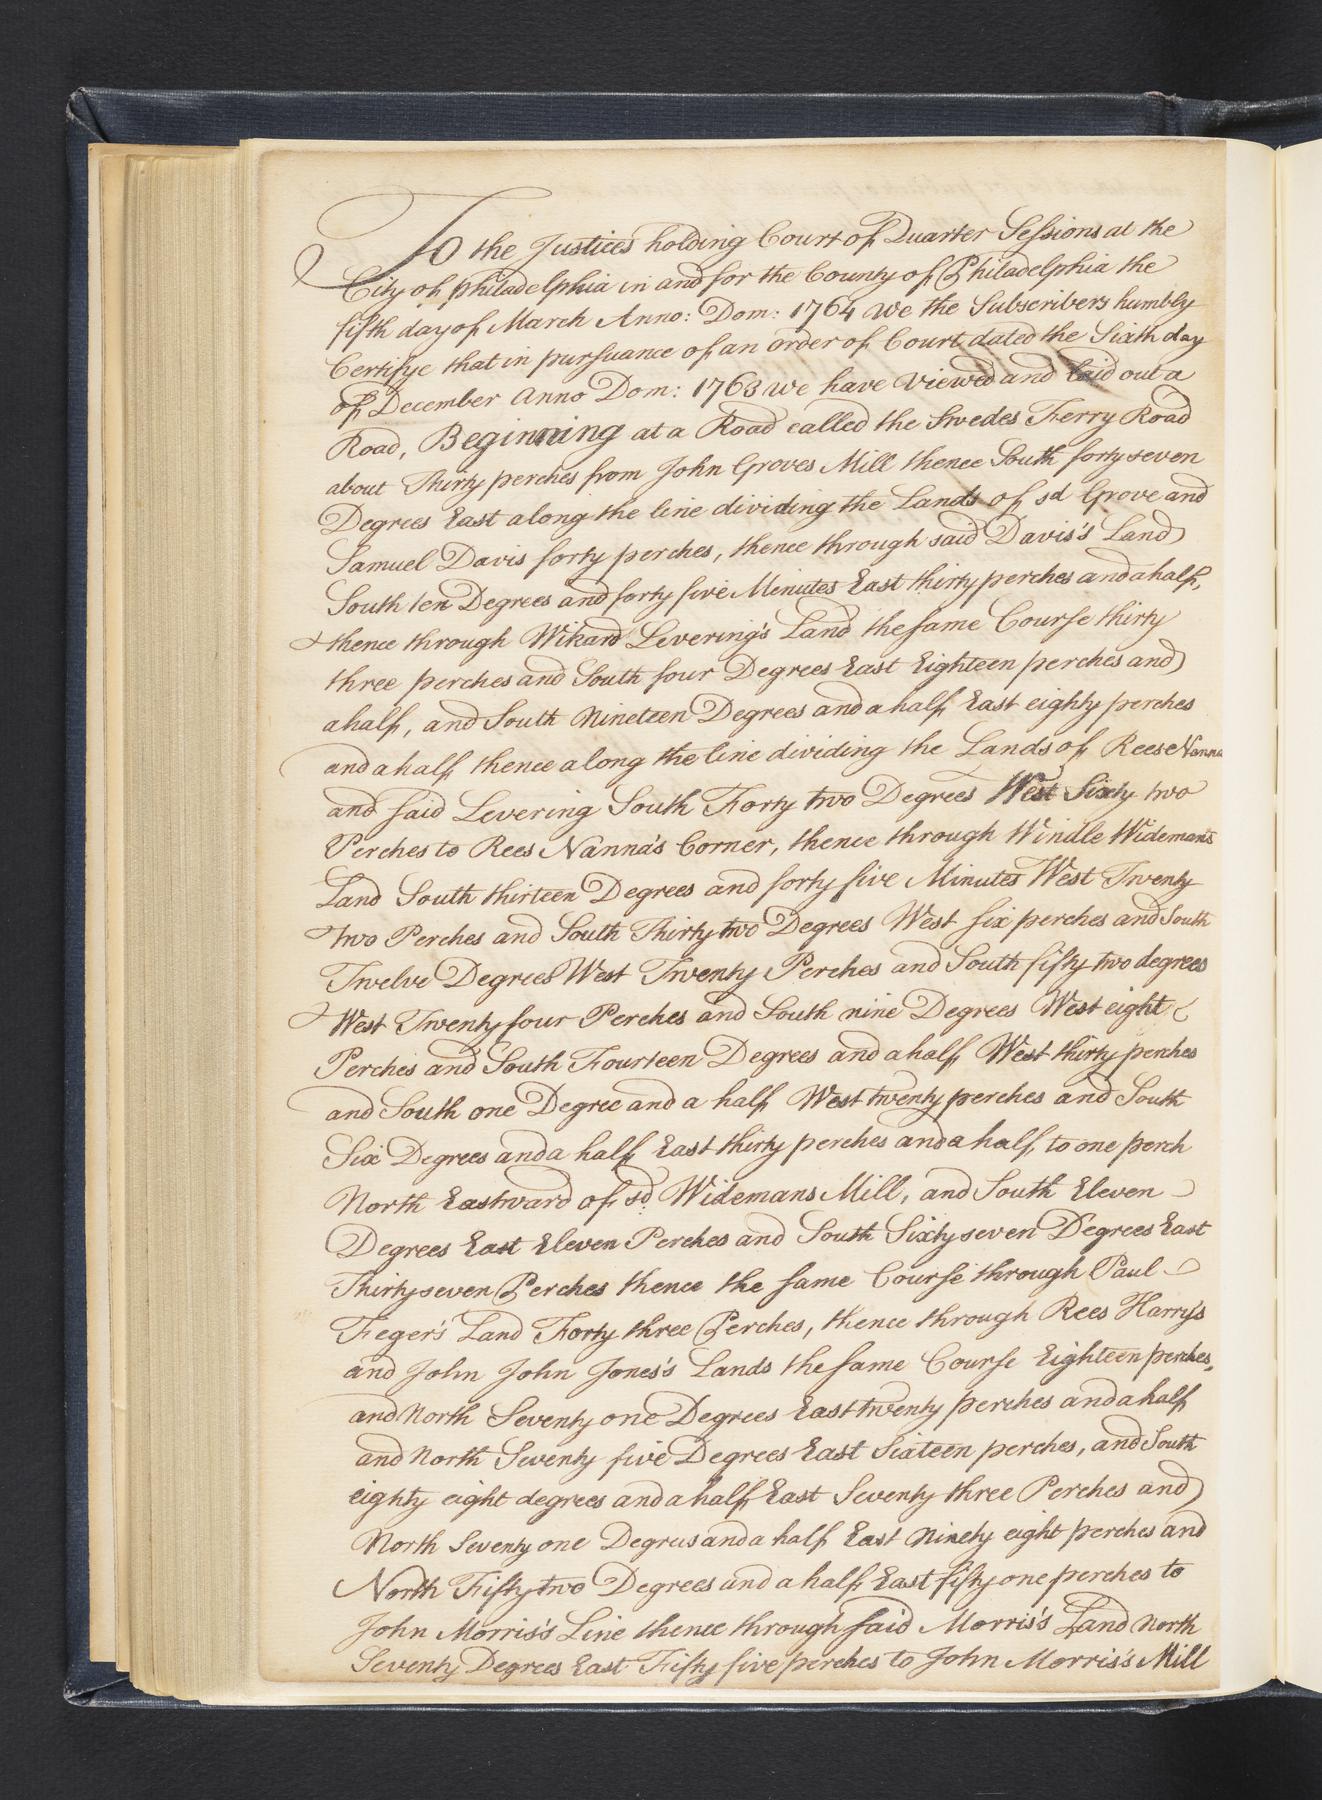 To the Justices holding Court of Quarter Sessions at the
City of Philadelphia in and for the County of Philadelphia the
fifth day of March Anno: Dom: 1764 We the Subscribers humbly
Certifye that in pursuance of an order of Court dated the Sixth day
of December Anno Dom: 1763 we have Viewed and laid out a
Road, Beginning at a Road called the Swedes Ferry Road
about Thirty perches from John Groves Mill thence South forty seven
Degrees East along the line dividing the Lands of sd Grove and
Samuel Davis forty perches, thence through said Davis's Land
South ten Degrees and forty five Minutes East thirty perches and a half,
thence through Wikard Levering's Land the same Course thirty
three perches and South four Degrees East Eighteen perches and
a half, and South Nineteen Degrees and a half East eighty perches
and a half thence along the line dividing the Lands of Rees Nanna
and said Levering South Forty two Degrees West Sixty two
Perches to Rees Nanna's Corner, thence through Windle Wideman's
Land South thirteen Degrees and forty five Minutes West Twenty
two Perches and South Thirty two Degrees West six perches and South
Twelve Degrees West Twenty Perches and South fifty two degrees
West Twenty four Perches and South nine Degrees West eight
Perches and South Fourteen Degrees and a half West thirty perches
and South one Degree and a half West twenty perches and South
Six Degrees and a half East thirty perches and a half, to one perch
North Eastward of sd Widemans Mill, and South Eleven
Degrees East Eleven Perches and South Sixty seven Degrees East
Thirty seven Perches thence the same Course through Paul
Feger's Land Forty three Perches, thence through Rees Harry's
and John John Jones's Lands the same Course Eighteen perches,
and North Seventy one Degrees East twenty perches and a half
and North Seventy five Degrees East Sixteen perches, and South
eighty eight degrees and a half East Seventy three Perches and
North Seventy one Degrees and a half East Ninety eight perches and
North Fifty two Degrees and a half East fifty one perches to
John Morris's Line thence through said Morris's Land North
Seventy Degrees East Fifty five perches to John Morris's Mill